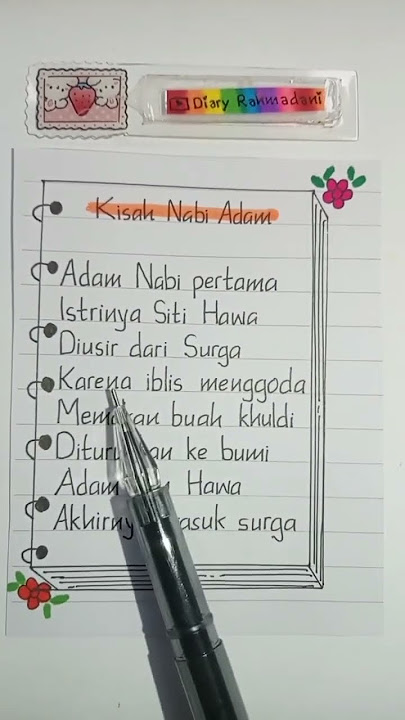 Diary Rahmadani
Kisah Nabi Adam
Adam Nabi pertama
Istrinya Siti Hawa
Diusir dari Surga
Karena iblis menggoda
buah khuldi
ke bumi
Adam Hawa
surga